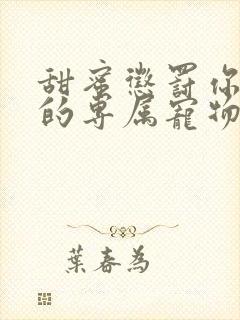 甜蜜懲罰你
的專屬寵物
葉春為